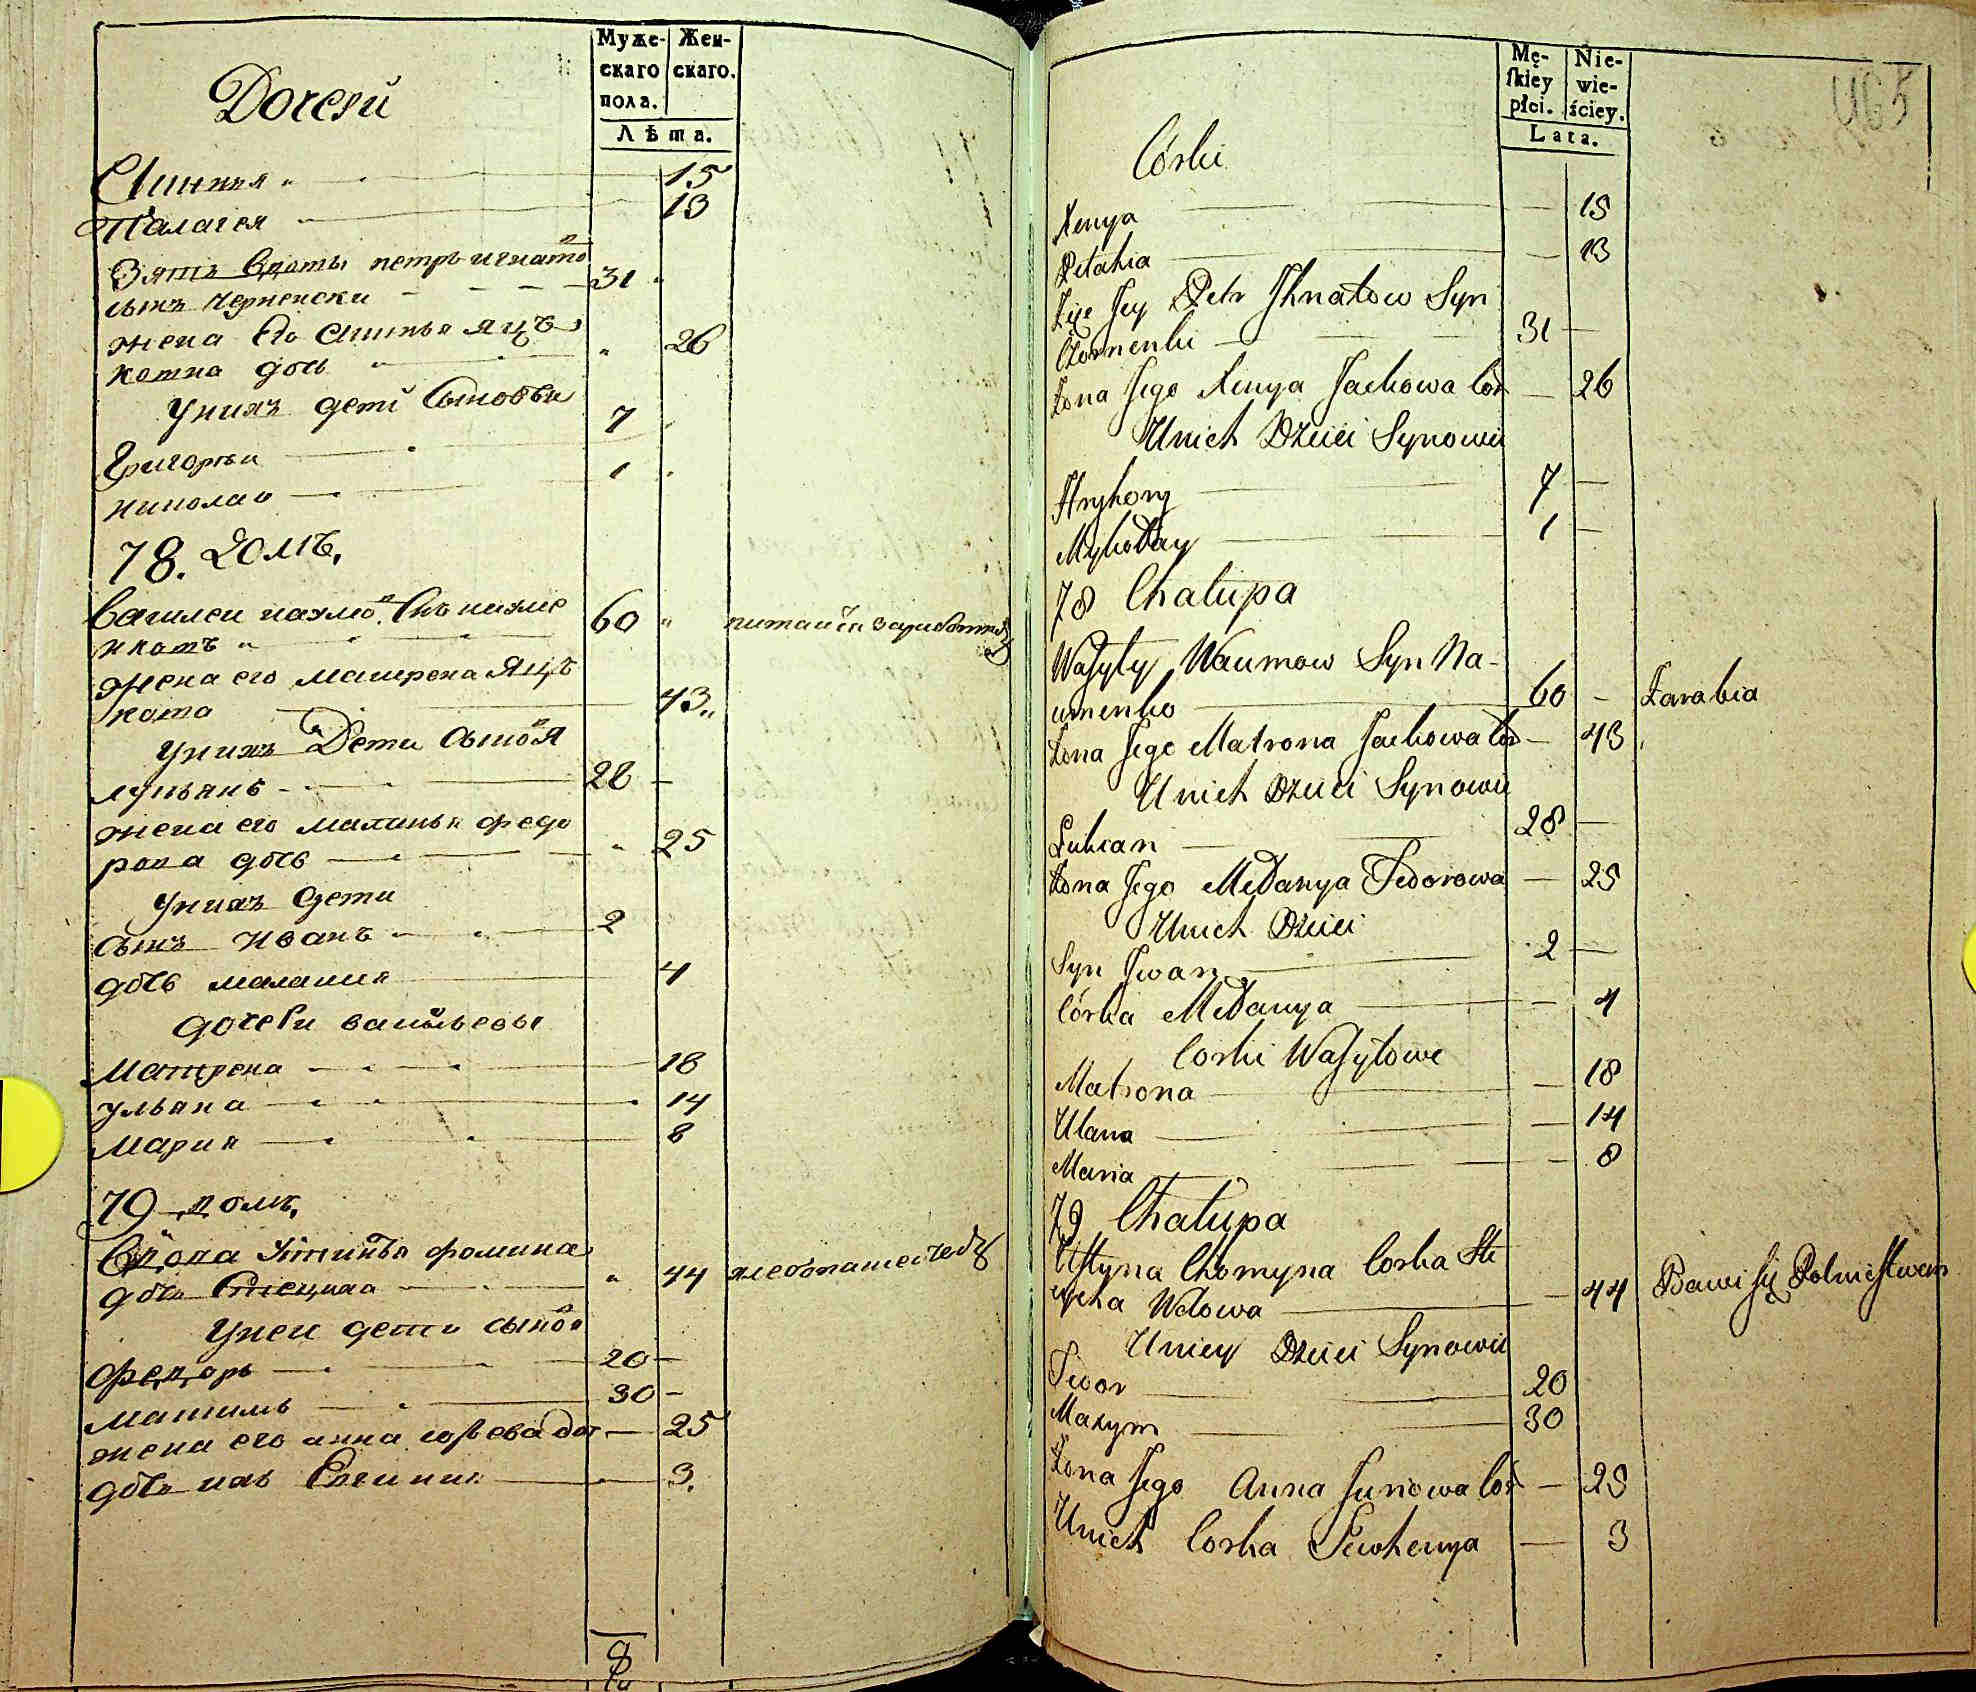 Муже-
скаго
пола.
Жен-
скаго.
Лѣта.
Дочери
15
Палагея 13
Зять вдовы петръ игнатов
сынъ Черненски 31
жена Его Ксинья яцъ
кова дочь 26
У нихъ дети Сыновьи
Григорьи 7
николаи 1
78. Домъ.
Василеи наумов. Сынъ науме
нкотъ 60
жена его матрена Яцъ
кова 43
У нихъ Дети Сынов
лукьянъ 28
жена его маланья федо
рова дочь 25
У нихъ дети
Сынъ иванъ 2
дочь малания 4
дочери васильевы
Матрена 18
ульяна 14
мария 8
79 домъ.
Вдова Устинья фомина
дочь 44
У неи дети сынов
федоръ 20
максимъ 30
жена его анна юрьева доч 25
дочь ихъ Евгиния 3.
Mę-
skiey
płci.
Nie-
wie-
ściey.
Lata.
465
Córki
Xenya 15
Pelahia 13
Zięc Jey Petr Ihnatow Syn
Czornenki 31
Żona Jego Xenya Jackowa Cór 26
U nich Dzieci Synowie
Hryhory 7
Mykołay 1
78 Chałupa
Wasyly Naumow Syn Na-
umenko 60 Zarabia
Żona Jego Matrona Jackowa Cór 43
U nich Dzieci Synowie
Lukian 28
Żona Jego Mełanya Fedorowa 25
U nich Dzieci
Syn Iwan 2
Córka Mełanya 4
Corki Wasylowe
Matrona 18
Ulana 14
Maria 8
79 Chałupa
Ustyna Chomyna Corka Ste
cycha Wdowa 44 Bawi się Rolnictwem
U niey Dzieci Synowie
Fedor 20
Maxym 30
Żona Jego Anna Juriowa Cór 25
U nich Corka Jewhenya 3